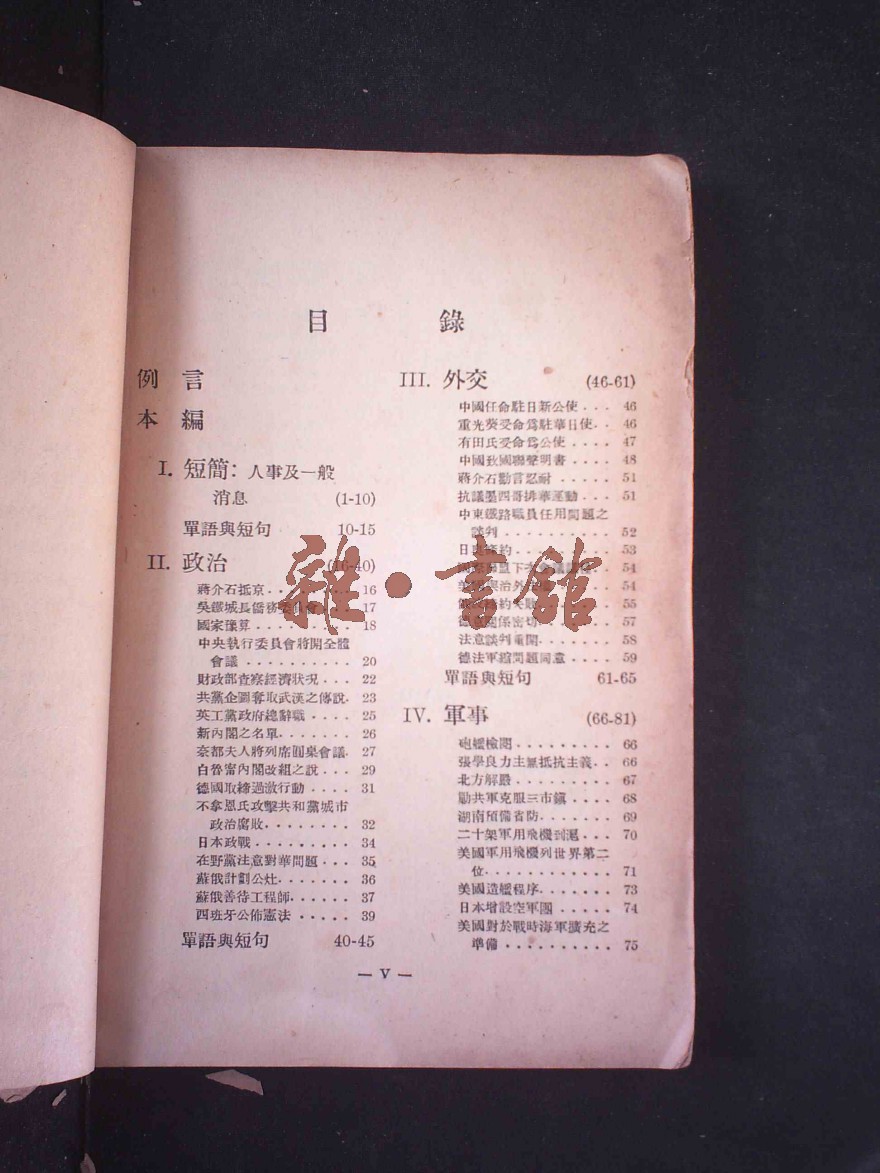 目 錄
例 言
本 編
I. 短簡：人事及一般
消息 (1-10)
單語與短句 10-15
II. 政治 (16-40)
蔣介石抵京 . . . . . . . . 16
吳鐵城長僑務委員會 . . 17
國家豫算 . . . . . . . . . 18
中央執行委員會將開全體
會議 . . . . . . . . . . 20
財政部查察經濟狀况 . . . 22
共黨企圖奪取武漢之傳說. 23
英工黨政府總辭職 . . . . 25
新內閣之名單. . . . . . . 26
奈都夫人將列席圓桌會議. 27
白魯甯內閣改組之說 . . . 29
德國取締過激行動 . . . . 31
不拿恩氏攻擊共和黨城市
政治腐敗. . . . . . . . 32
日本政戰 . . . . . . . . . 34
在野黨注意對華問題 . . . 35
蘇俄計劃公灶. . . . . . . 36
蘇俄善待工程師. . . . . . 37
西班牙公佈憲法 . . . . . 39
單語與短句 40-45
III. 外交 (46-61)
中國任命駐日新公使. . . 46
重光葵受命爲駐華日使. . 46
有田氏受命爲公使 . . . . 47
中國致國聯聲明書 . . . . 48
蔣介石勸言忍耐 . . . . . 51
抗議墨西哥排華運動 . . . 51
中東鐵路職員任用問題之
談判 . . . . . . . . . . 52
日 約 . . . . . . . . 53
54
美 治外 54
約 55
德 係密切 . . . . 57
法意談判重開. . . . . . . 58
德法軍縮問題同意 . . . . 59
單語與短句 61-65
IV. 軍事 (66-81)
砲艦檢閱 . . . . . . . . . 66
張學良力主無抵抗主義. . 66
北方解嚴 . . . . . . . . . 67
勦共軍克服三市鎮 . . . . 68
湖南預備省防. . . . . . . 69
二十架軍用飛機到滬 . . . 70
美國軍用飛機列世界第二
位. . . . . . . . . . . 71
美國造艦程序. . . . . . . 73
日本增設空軍團 . . . . . 74
美國對於戰時海軍擴充之
準備 . . . . . . . . . . 75
— V —
雜·書館